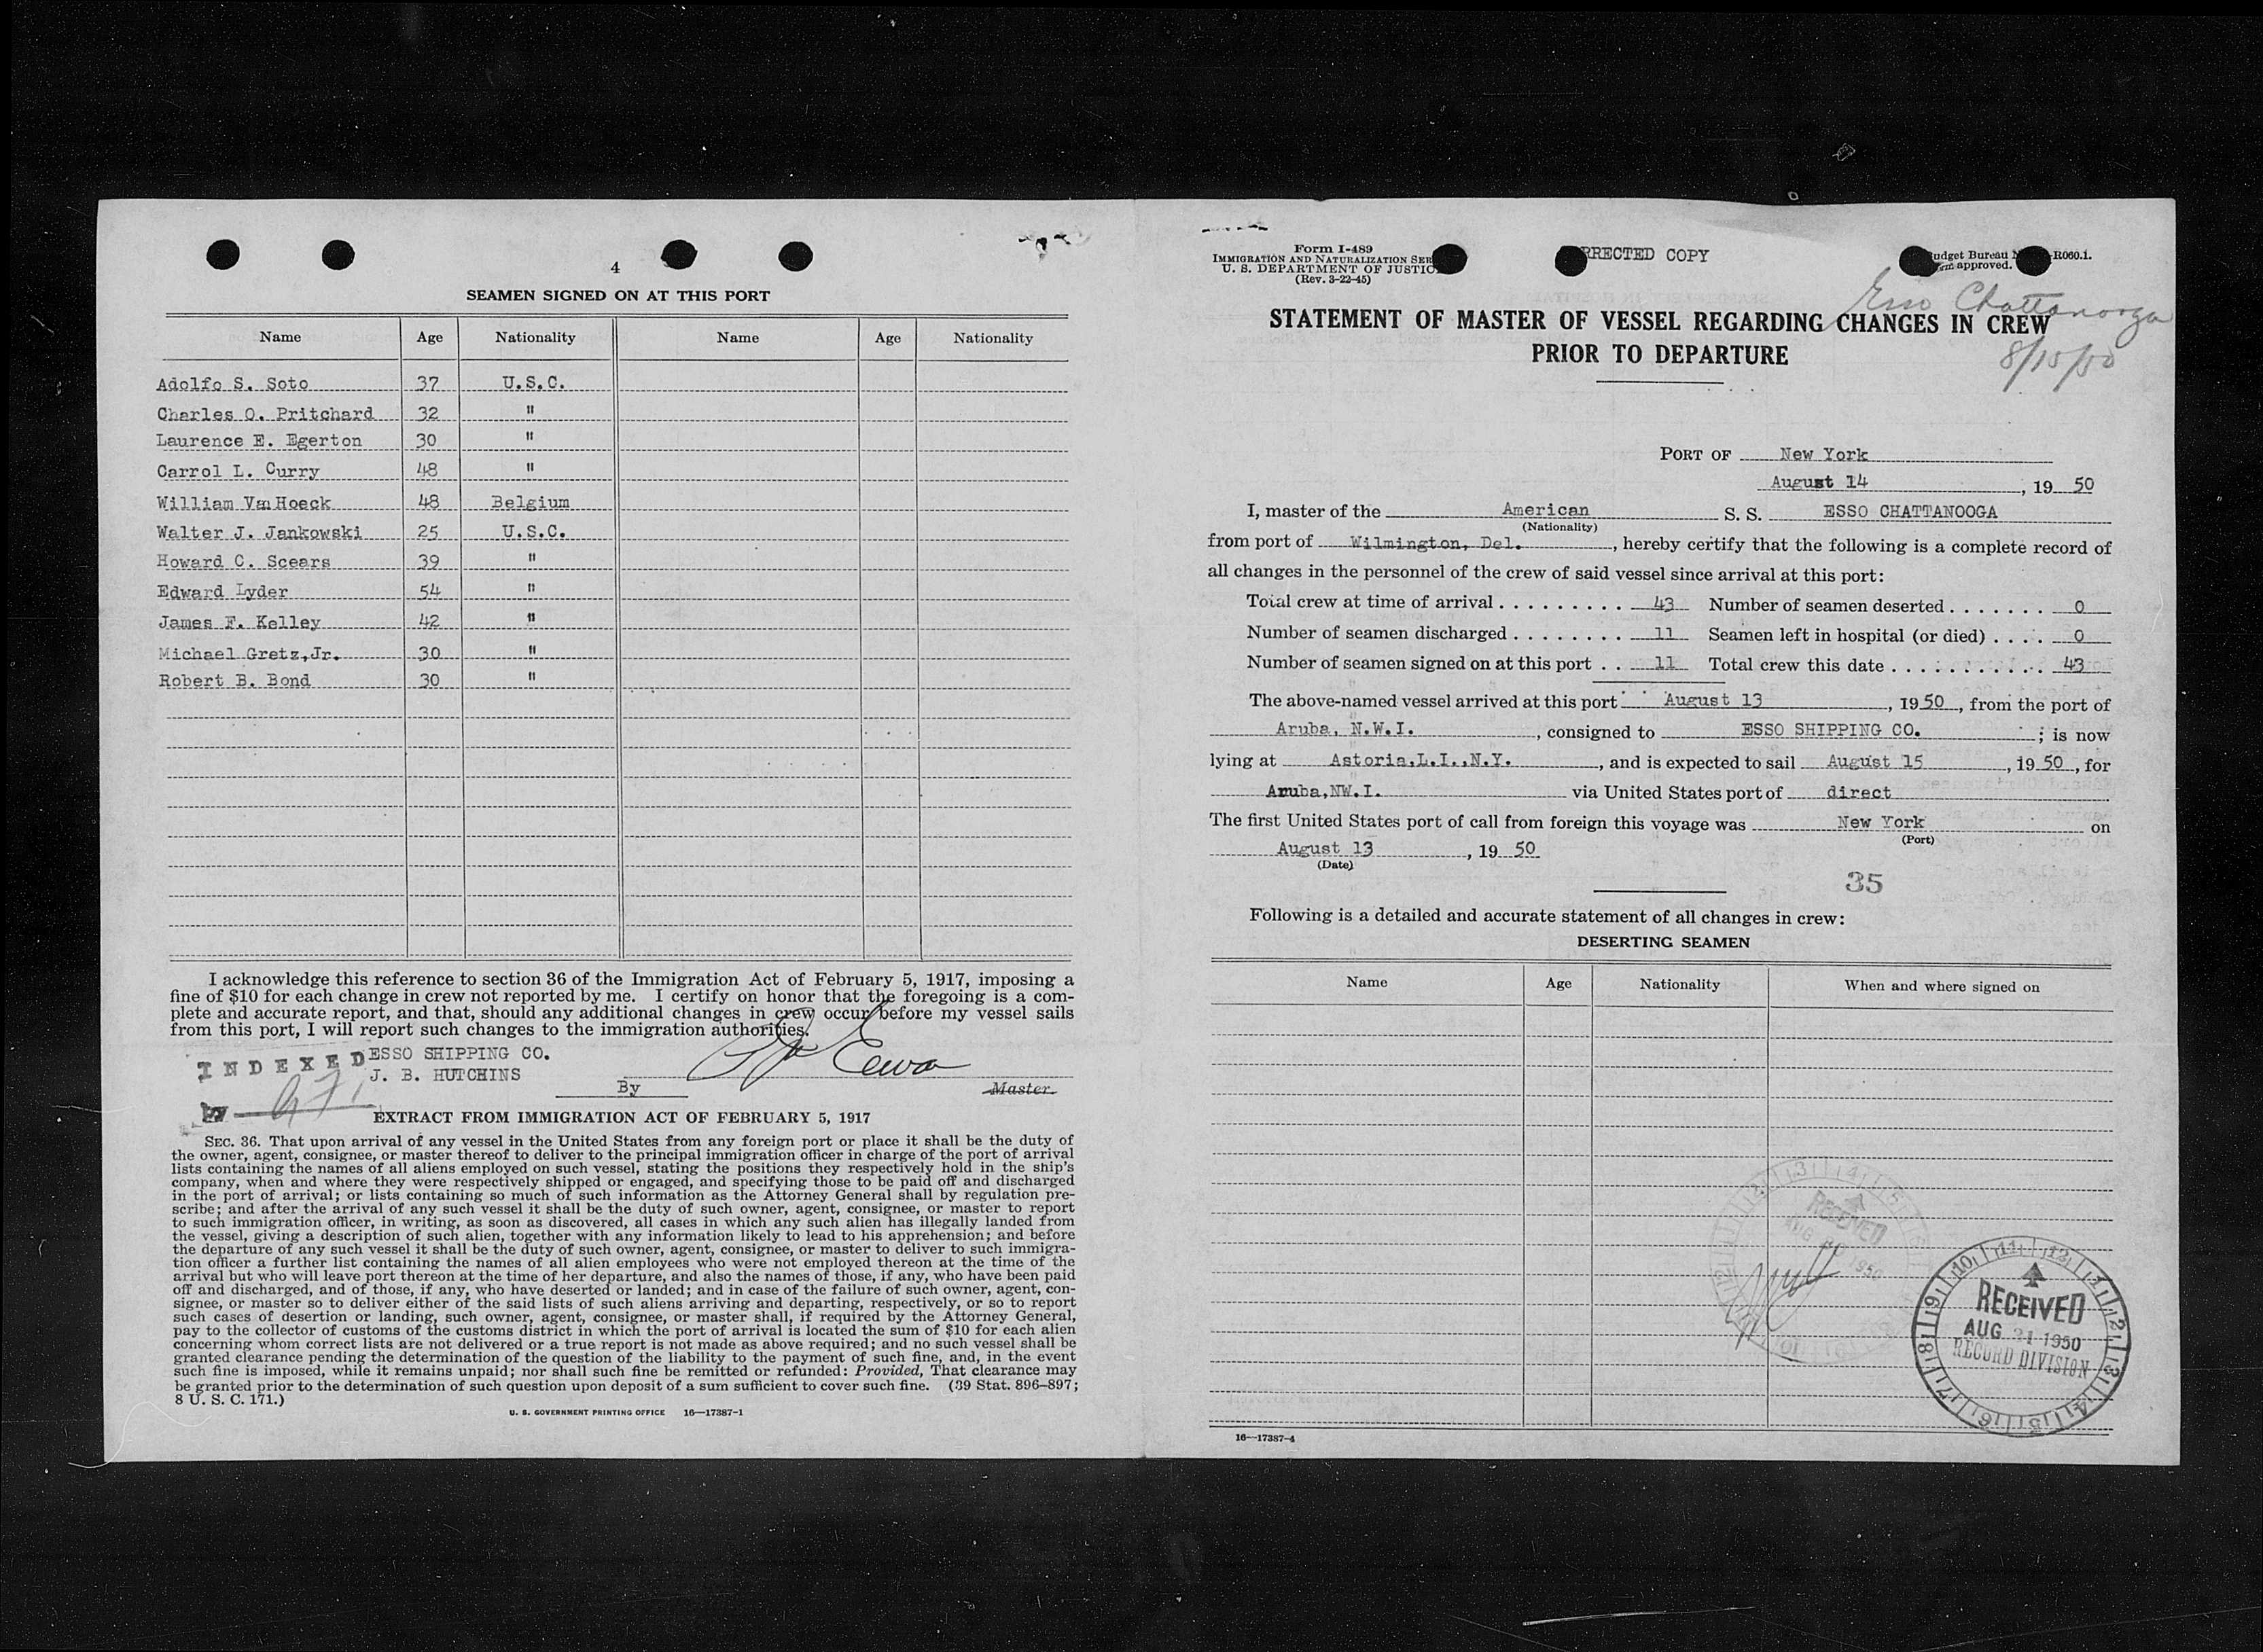 4
SEAMEN SIGNED ON AT THIS PORT
Name Age Nationality Name Age Nationality
Adolfo S. Soto 37 U.S.C.
Charles O. Pritchard 32 "
Laurence E. Egerton 30 "
Carrol L. Curry 48 "
William Van Hoeck 48 Belgium
Walter J. Jankowski 25 U.S.C.
Howard C. Scears 39 "
Edward Lyder 54 "
James F. Kelley 42 "
Michael Gretz,Jr. 30 "
Robert B. Bond 30 "
I acknowledge this reference to section 36 of the Immigration Act of February 5, 1917, imposing a
fine of $10 for each change in crew not reported by me. I certify on honor that the foregoing is a com-
plete and accurate report, and that, should any additional changes in crew occur before my vessel sails
from this port, I will report such changes to the immigration authorities.
INDEXED ESSO SHIPPING CO.
J. B. HUTCHINS
By Master.
EXTRACT FROM IMMIGRATION ACT OF FEBRUARY 5, 1917
SEC. 36. That upon arrival of any vessel in the United States from any foreign port or place it shall be the duty of
the owner, agent, consignee, or master thereof to deliver to the principal immigration officer in charge of the port of arrival
lists containing the names of all aliens employed on such vessel, stating the positions they respectively hold in the ship's
company, when and where they were respectively shipped or engaged, and specifying those to be paid off and discharged
in the port of arrival; or lists containing so much of such information as the Attorney General shall by regulation pre-
scribe; and after the arrival of any such vessel it shall be the duty of such owner, agent, consignee, or master to report
to such immigration officer, in writing, as soon as discovered, all cases in which any such alien has illegally landed from
the vessel, giving a description of such alien, together with any information likely to lead to his apprehension; and before
the departure of any such vessel it shall be the duty of such owner, agent, consignee, or master to deliver to such immigra-
tion officer a further list containing the names of all alien employees who were not employed thereon at the time of the
arrival but who will leave port thereon at the time of her departure, and also the names of those, if any, who have been paid
off and discharged, and of those, if any, who have deserted or landed; and in case of the failure of such owner, agent, con-
signee, or master so to deliver either of the said lists of such aliens arriving and departing, respectively, or so to report
such cases of desertion or landing, such owner, agent, consignee, or master shall, if required by the Attorney General,
pay to the collector of customs of the customs district in which the port of arrival is located the sum of $10 for each alien
concerning whom correct lists are not delivered or a true report is not made as above required; and no such vessel shall be
granted clearance pending the determination of the question of the liability to the payment of such fine, and, in the event
such fine is imposed, while it remains unpaid; nor shall such fine be remitted or refunded: Provided, That clearance may
be granted prior to the determination of such question upon deposit of a sum sufficient to cover such fine. (39 Stat. 896–897;
8 U. S. C. 171.)
U. S. GOVERNMENT PRINTING OFFICE 16—17387-1
Form I-489
IMMIGRATION AND NATURALIZATION SER
U. S. DEPARTMENT OF JUSTIC
(Rev. 3-22-45)
RRECTED COPY
udget Bureau N R060.1.
approved.
Esso Chattanooga
8/15/50
STATEMENT OF MASTER OF VESSEL REGARDING CHANGES IN CREW
PRIOR TO DEPARTURE
PORT OF New York
August 14, 19 50
I, master of the American S. S. ESSO CHATTANOOGA
(Nationality)
from port of Wilmington, Del., hereby certify that the following is a complete record of
all changes in the personnel of the crew of said vessel since arrival at this port:
Total crew at time of arrival . . . . . . . . . 43 Number of seamen deserted . . . . . . . 0
Number of seamen discharged . . . . . . . . 11 Seamen left in hospital (or died) . . . . 0
Number of seamen signed on at this port . . 11 Total crew this date . . . . . . . . . . . . 43
The above-named vessel arrived at this port August 13, 19 50, from the port of
Aruba, N.W.I., consigned to ESSO SHIPPING CO.; is now
lying at Astoria,L.I.,N.Y., and is expected to sail August 15, 19 50, for
Aruba,NW.I. via United States port of direct
The first United States port of call from foreign this voyage was New York on
(Port)
August 13, 19 50
(Date)
35
Following is a detailed and accurate statement of all changes in crew:
DESERTING SEAMEN
Name Age Nationality When and where signed on
RECEIVED
AUG 1950
RECEIVED
AUG 21 1950
RECORD DIVISION
16—17387-4